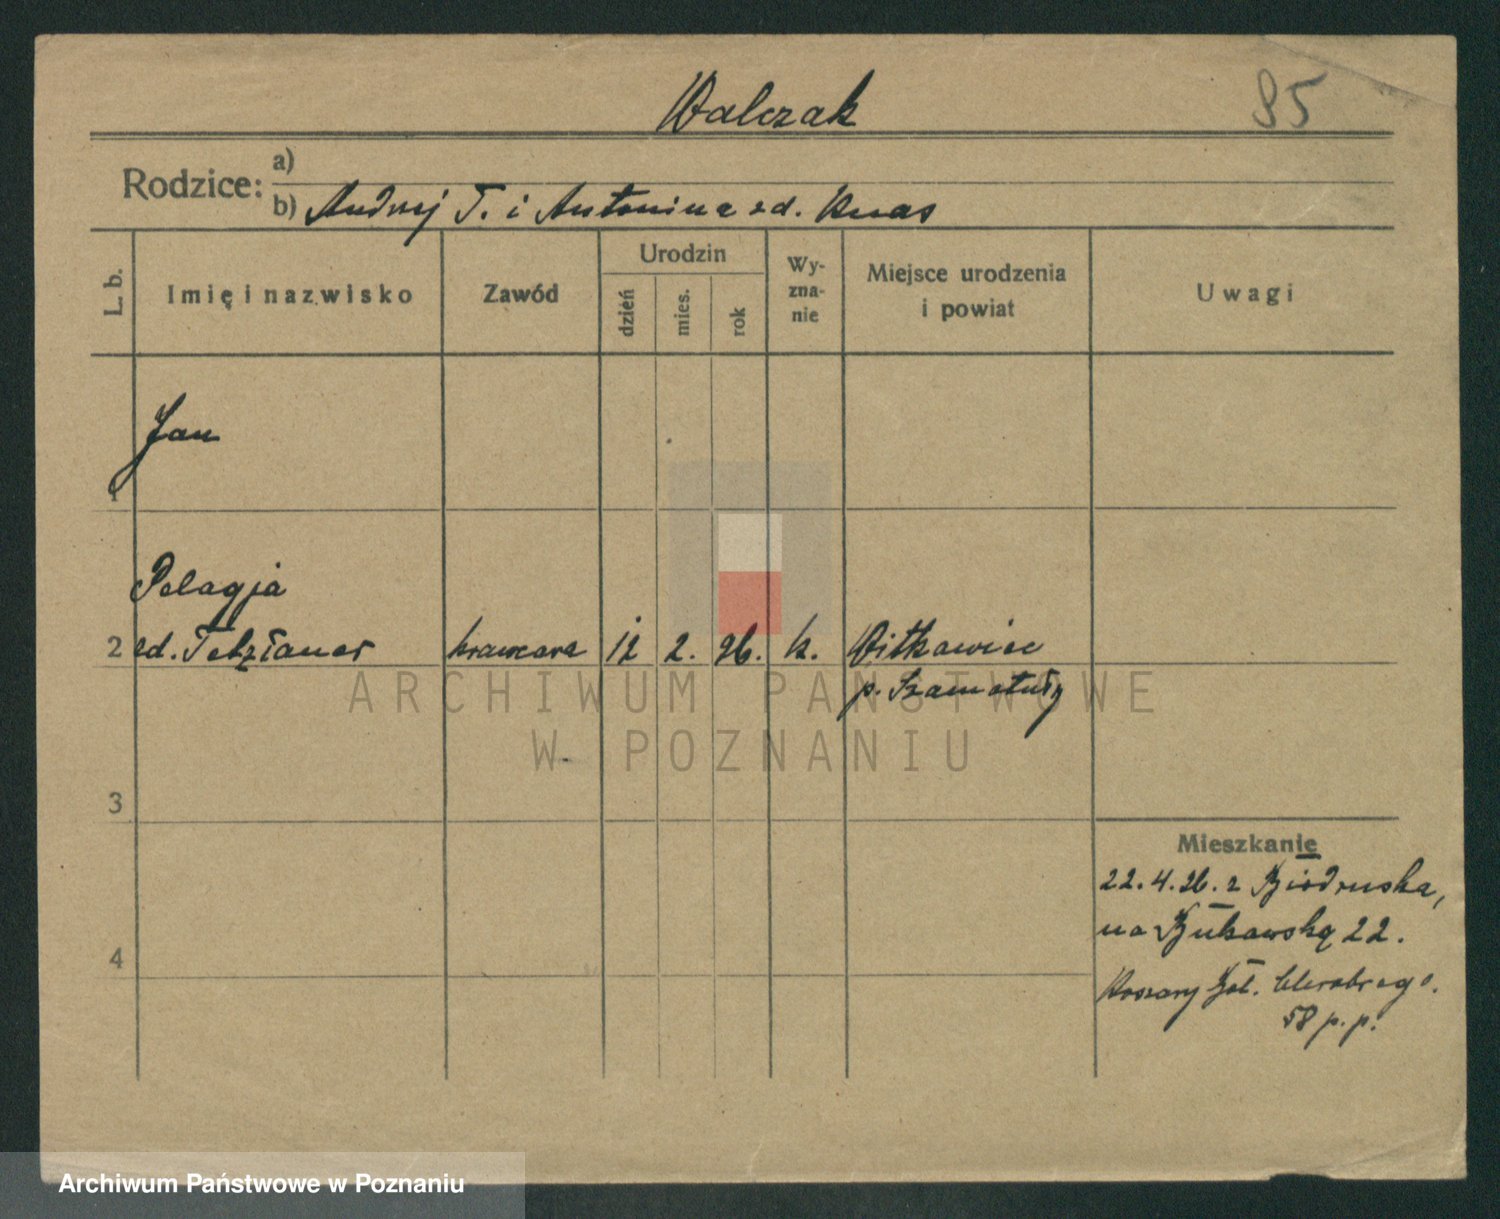 Walczak
85
Rodzice: a)
b) Andrzej T. i Antonina zd. Knas
L. b.
Imię i nazwisko
Zawód
Urodzin
dzień
mies.
rok
Wy-
zna-
nie
Miejsce urodzenia
i powiat
Uwagi
Jan
1
Pelagja
2 zd. krawcowa 12 2. 96. k. Witkowice
p. Szamotuły
ARCHIWUM PAŃSTWOWE
W POZNANIU
3
Mieszkanie
22.4.26. z Biedruska,
na Bukowską 22.
4
Koszary
58 p.p.
Archiwum Państwowe w Poznaniu